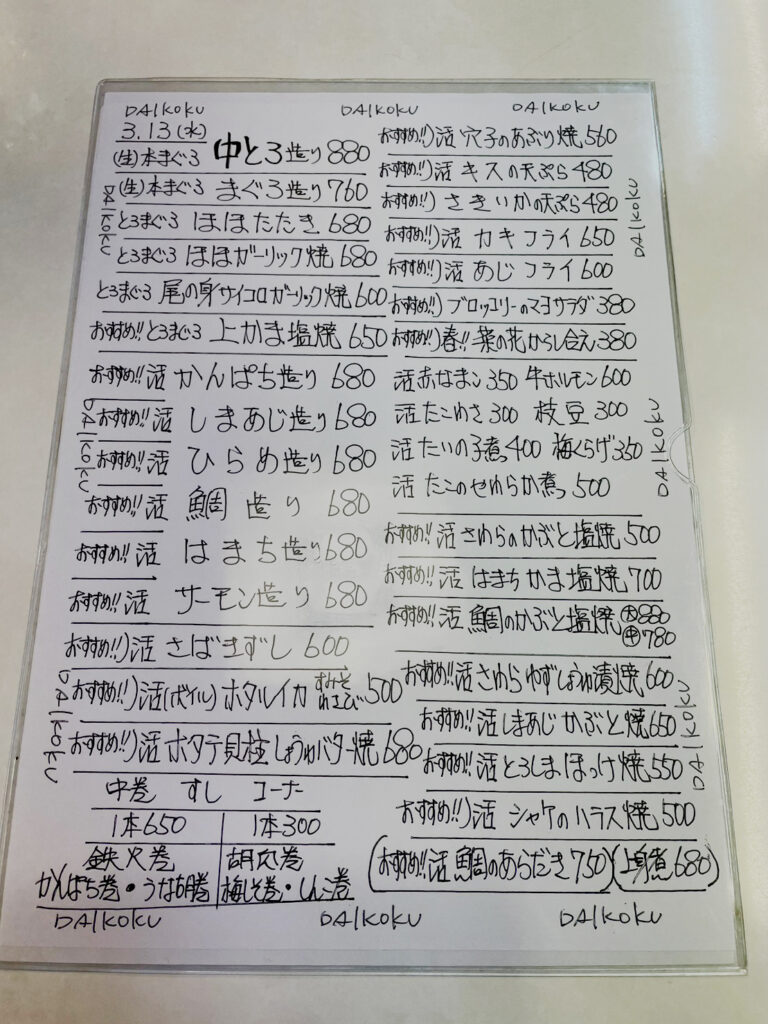 DAIKOKU DAIKOKU DAIKOKU
3.13(水)
(生)本まぐろ 中とろ造り 880
(生)本まぐろ まぐろ造り 760
とろまぐろ ほほたたき 680
とろまぐろ ほほガーリック焼 680
とろまぐろ 尾の身サイコロガーリック焼 600
おすすめ!! とろまぐろ 上かま塩焼 650
おすすめ!! 活 かんぱち造り 680
おすすめ!! 活 しまあじ造り 680
おすすめ!! 活 ひらめ造り 680
おすすめ!! 活 鯛造り 680
おすすめ!! 活 はまち造り 680
おすすめ!! 活 サーモン造り 680
おすすめ!!)活 さばきずし 600
おすすめ!!)活(ボイル)ホタルイカ すみそ わさび 500
おすすめ!!)活 ホタテ貝柱しょうゆバター焼 680
中巻 すし コーナー
1本650 1本300
鉄火巻 胡瓜巻
かんぱち巻・うなち巻 梅しそ巻・しんこ巻
おすすめ!!)活 穴子のあぶり焼 560
おすすめ!!)活 キスの天ぷら 480
おすすめ!!) さきいかの天ぷら 480
おすすめ!!)活 カキフライ 650
おすすめ!!)活 あじフライ 600
おすすめ!!) ブロッコリーのマヨサラダ 380
おすすめ!!)春!! 菜の花からし合え 380
活赤なまこ 350 牛ホルモン 600
活たこわさ 300 枝豆 300
活たいの子煮 400 梅くらげ 350
活 たこのやわらか煮 500
おすすめ!! 活 さわらのかぶと塩焼 500
おすすめ!! 活 はまちかま塩焼 700
おすすめ!! 活 鯛のかぶと塩焼 大880 中780
おすすめ!! 活さわらゆずしょうゆ漬焼 600
おすすめ!! 活しまあじかぶと焼 650
おすすめ!! 活とろしまほっけ焼 550
おすすめ!!)活 シャケのハラス焼 500
(おすすめ!! 活 鯛のあらだき 750)(上身煮 680)
DAIKOKU DAIKOKU DAIKOKU
DAIKOKU
DAIKOKU
DAIKOKU
DAIKOKU
DAIKOKU
DAIKOKU